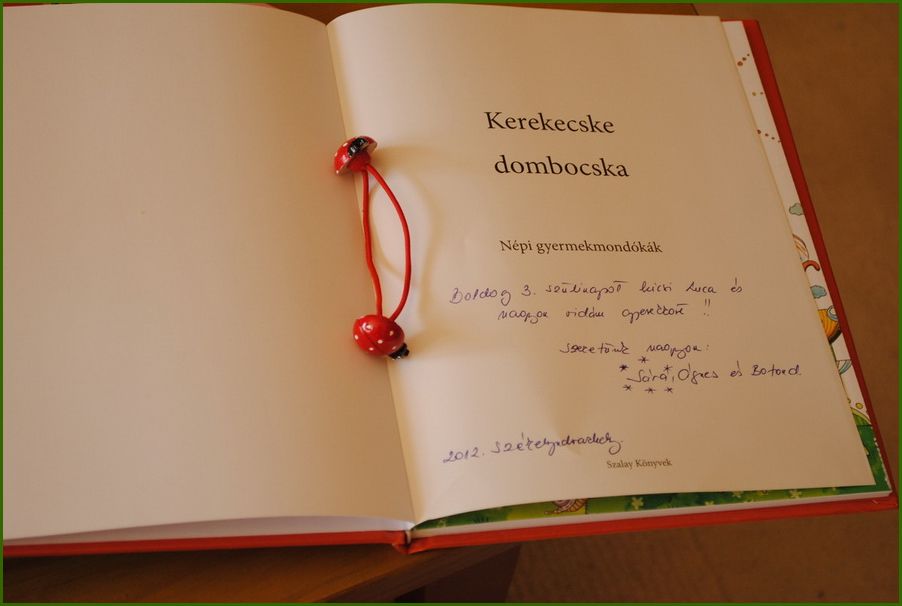 Kerekecske
dombocska
Népi gyermekmondókák
Boldog 3. szülinapot kicsi Luca és
nagyon vidám gyerekkort !!
Szeretünk nagyon:
Sára, Ágnes és Botond.
2012. Székelyudvarhely.
Szalay Könyvek